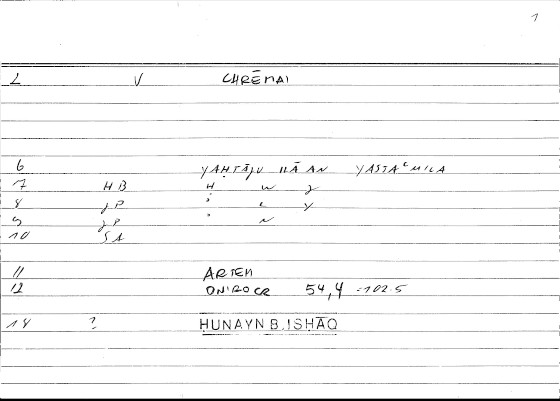 1
L V CHRĒMAI
6 YAḤTĀJU ILĀ AN YASTAʿMILA
7 HB H W J
8 JP Y
9 JP N
10 SA
11 ARTEM
12 ONIROCR 54,4 =102.5
18 ? ḤUNAYN B.ISḤĀQ